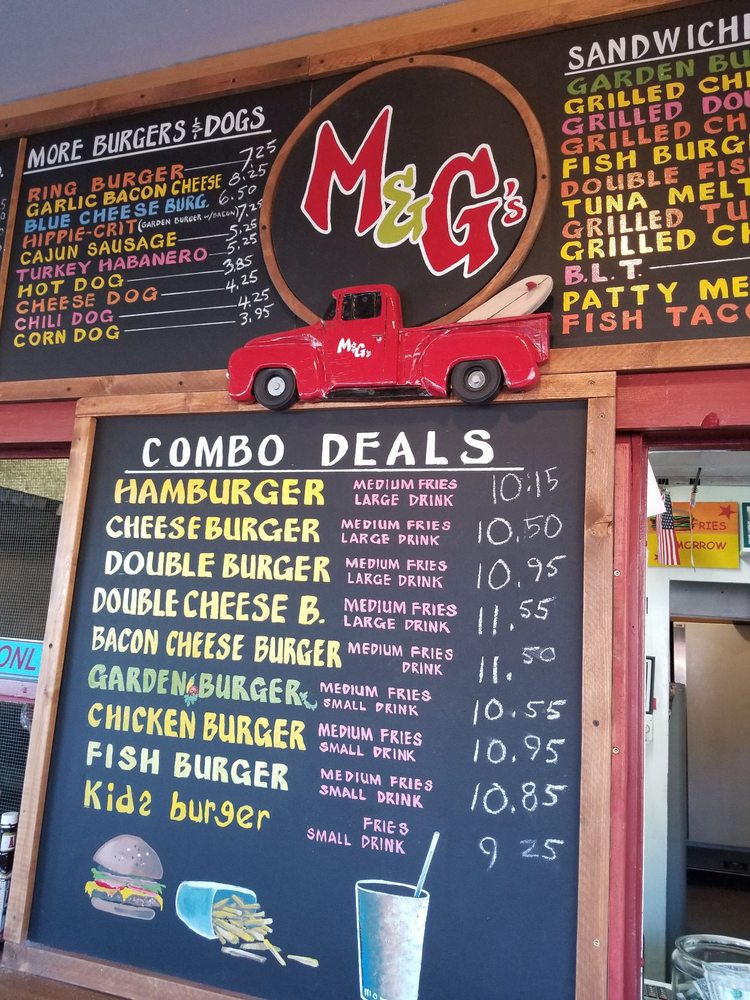 MORE BURGERS & DOGS
RING BURGER 7.25
GARLIC BACON CHEESE 8.25
BLUE CHEESE BURG. 6.50
HIPPIE-CRIT (GARDEN BURGER W/BACON) 7.25
CAJUN SAUSAGE 5.25
TURKEY HABANERO 5.25
HOT DOG 3.85
CHEESE DOG 4.25
CHILI DOG 4.25
CORN DOG 3.95
M&G's
M&G's
SANDWICH
GARDEN BU
GRILLED CH
GRILLED DOU
GRILLED CH
FISH BURG
DOUBLE FIS
TUNA MELT
GRILLED TU
GRILLED CH
B.L.T.
PATTY ME
FISH TACO
COMBO DEALS
HAMBURGER MEDIUM FRIES LARGE DRINK 10.15
CHEESEBURGER MEDIUM FRIES LARGE DRINK 10.50
DOUBLE BURGER MEDIUM FRIES LARGE DRINK 10.95
DOUBLE CHEESE B. MEDIUM FRIES LARGE DRINK 11.55
BACON CHEESE BURGER MEDIUM FRIES DRINK 11.50
GARDEN BURGER MEDIUM FRIES SMALL DRINK 10.55
CHICKEN BURGER MEDIUM FRIES SMALL DRINK 10.95
FISH BURGER MEDIUM FRIES SMALL DRINK 10.85
Kids burger FRIES SMALL DRINK 9 25
ONL
FRIES